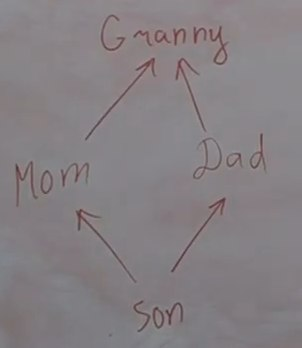 Granny
Mom Dad
Son